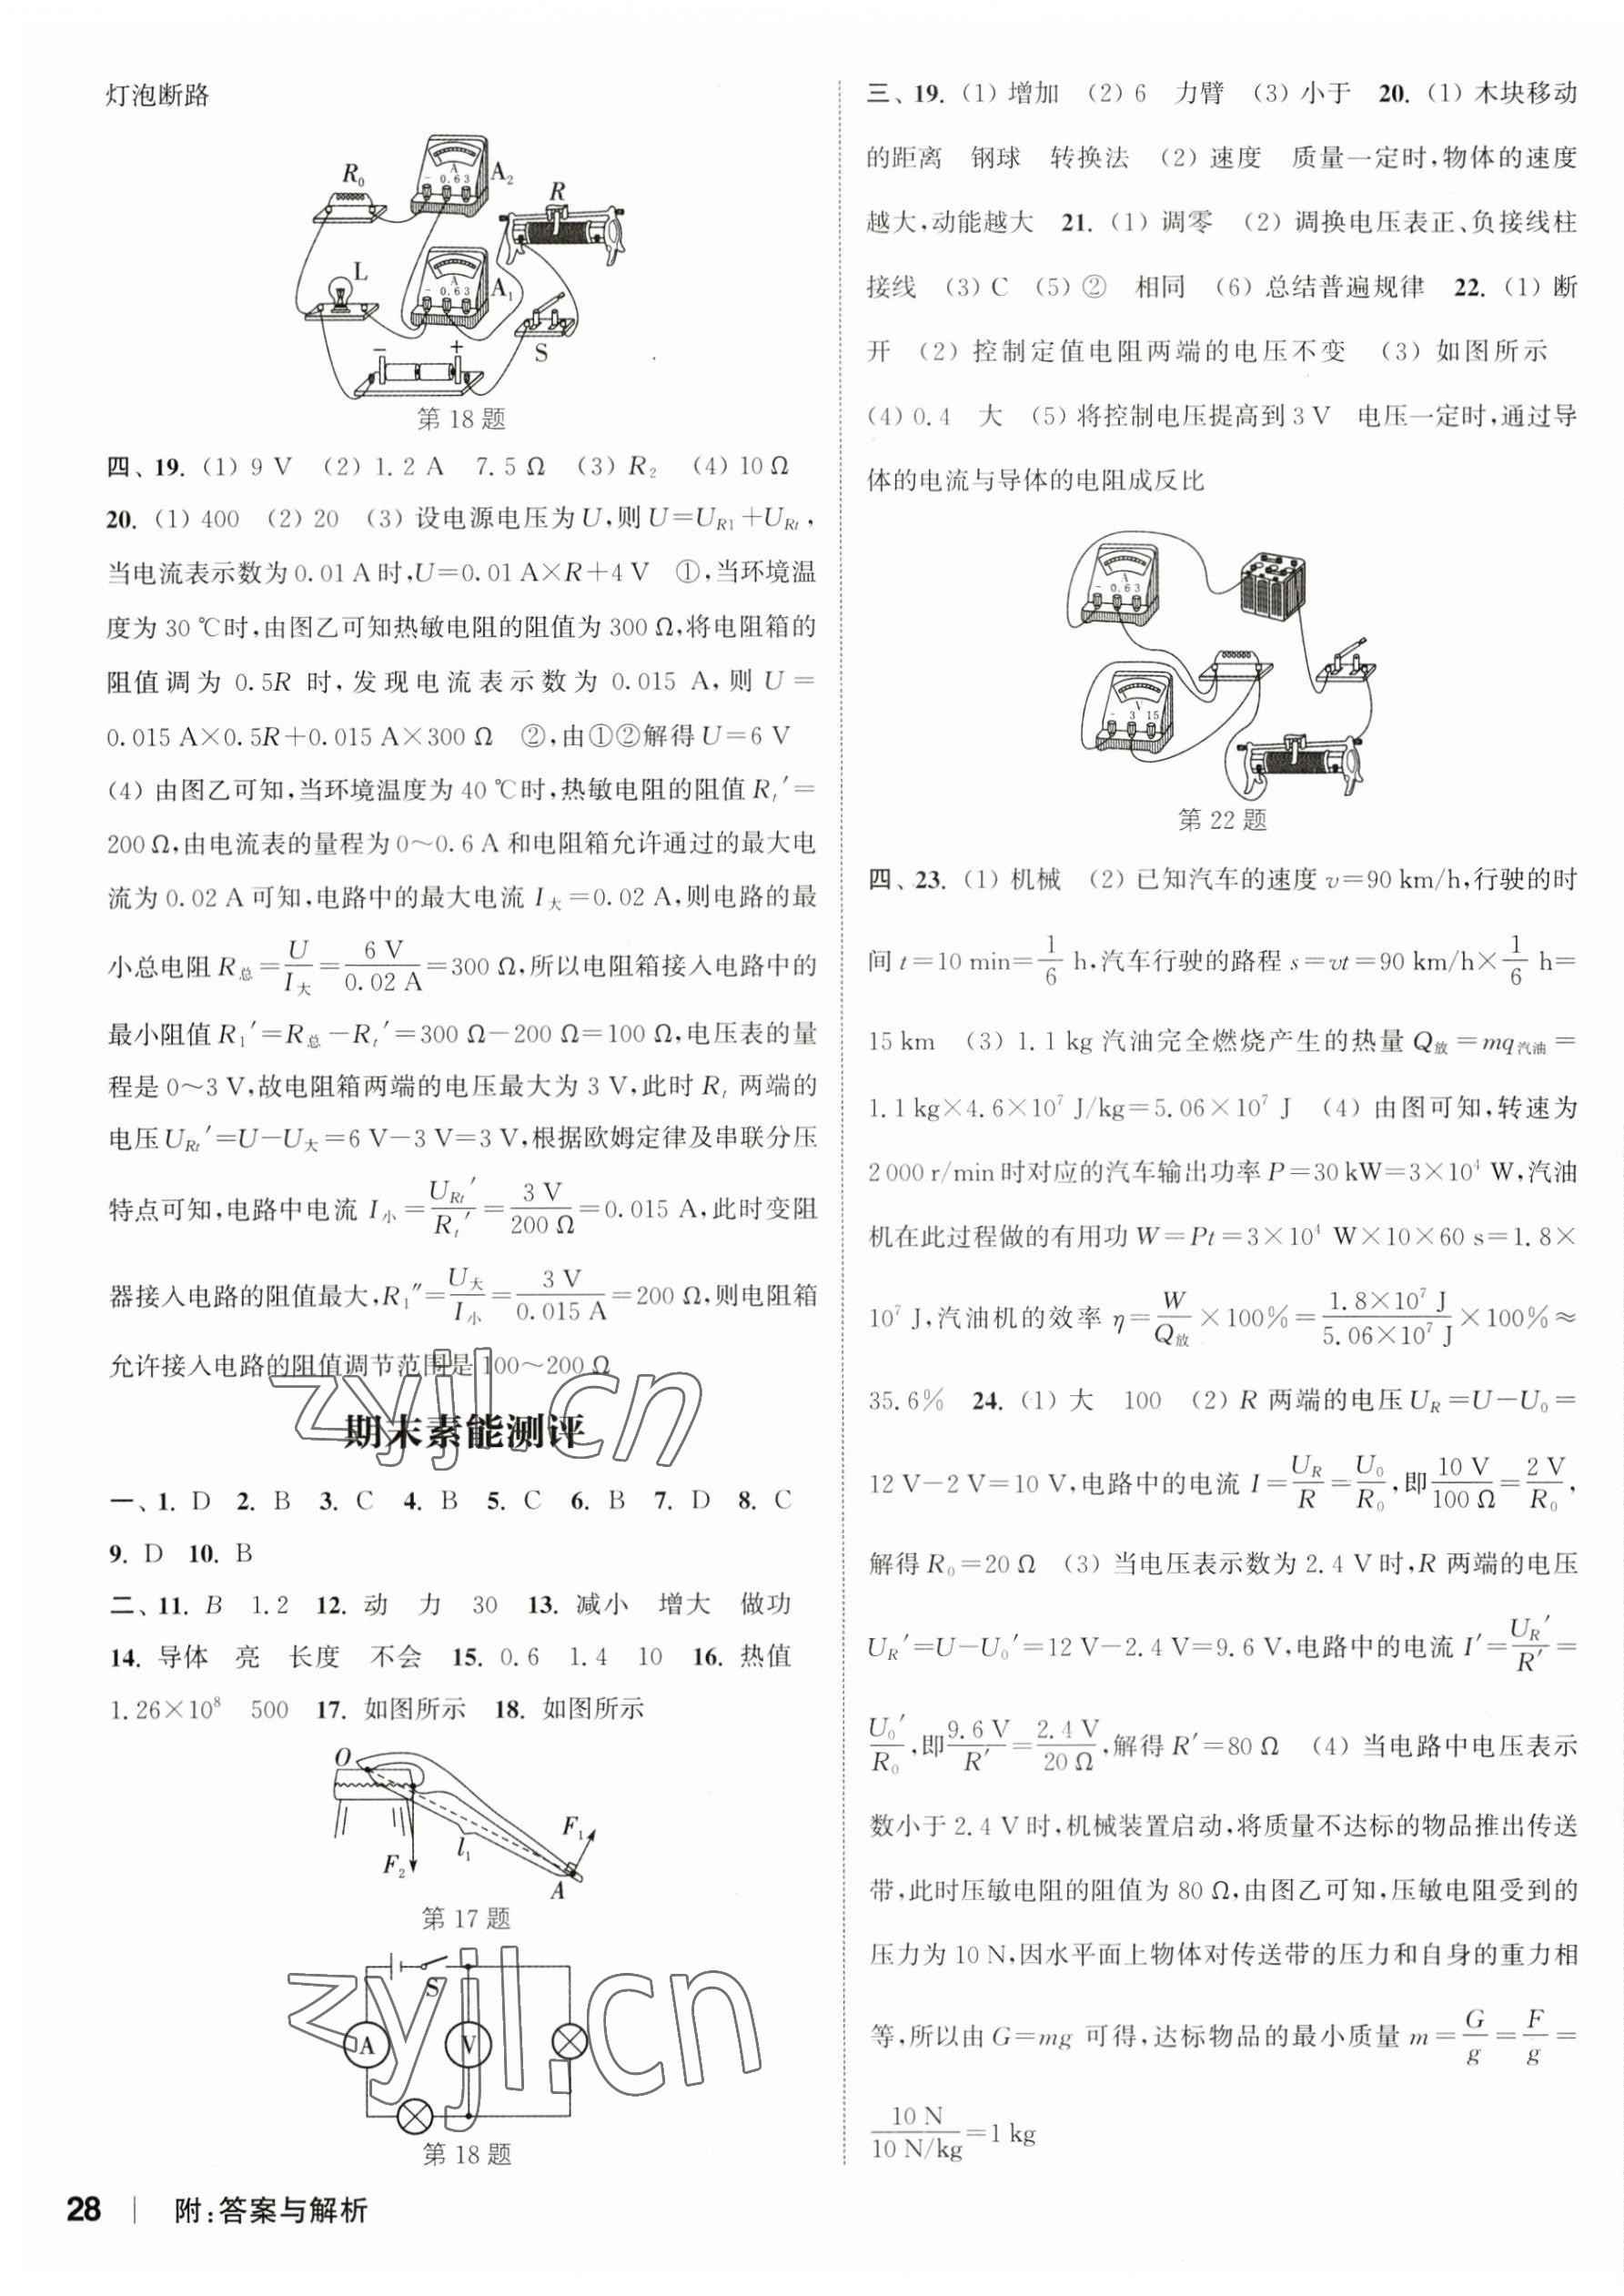 灯泡断路
R₀ A₂ R
A
- 0.6 3
L A₁
A
- 0.6 3
S
- +
第 18 题
四、19. (1) 9 V (2) 1.2 A 7.5 Ω (3) R₂ (4) 10 Ω
20. (1) 400 (2) 20 (3) 设电源电压为U,则U=U_{R1}+U_{Rt},
当电流表示数为0.01 A时,U=0.01 A×R+4 V ①,当环境温
度为 30 ℃时,由图乙可知热敏电阻的阻值为 300 Ω,将电阻箱的
阻值调为 0.5R 时,发现电流表示数为 0.015 A,则 U=
0.015 A×0.5R+0.015 A×300 Ω ②,由①②解得U=6 V
(4) 由图乙可知,当环境温度为 40 ℃时,热敏电阻的阻值 R_t′=
200 Ω,由电流表的量程为0~0.6 A和电阻箱允许通过的最大电
流为0.02 A可知,电路中的最大电流 I_大=0.02 A,则电路的最
小总电阻 R_总=U/I_大=6 V/0.02 A=300 Ω,所以电阻箱接入电路中的
最小阻值 R₁′=R_总-R_t′=300 Ω-200 Ω=100 Ω,电压表的量
程是 0~3 V,故电阻箱两端的电压最大为 3 V,此时 R_t 两端的
电压U_{Rt}′=U-U_大=6 V-3 V=3 V,根据欧姆定律及串联分压
特点可知,电路中电流 I_小=U_{Rt}′/R_t′=3 V/200 Ω=0.015 A,此时变阻
器接入电路的阻值最大,R₁″=U_大/I_小=3 V/0.015 A=200 Ω,则电阻箱
允许接入电路的阻值调节范围是 100~200 Ω
zyjl.cn
期末素能测评
一、1. D 2. B 3. C 4. B 5. C 6. B 7. D 8. C
9. D 10. B
二、11. B 1.2 12. 动 力 30 13. 减小 增大 做功
14. 导体 亮 长度 不会 15. 0.6 1.4 10 16. 热值
1.26×10⁸ 500 17. 如图所示 18. 如图所示
O
F₁
l₁
F₂
A
第 17 题
S
A V
zyjl.cn
第 18 题
28 附:答案与解析
三、19. (1) 增加 (2) 6 力臂 (3) 小于 20. (1) 木块移动
的距离 钢球 转换法 (2) 速度 质量一定时,物体的速度
越大,动能越大 21. (1) 调零 (2) 调换电压表正、负接线柱
接线 (3) C (5) ② 相同 (6) 总结普遍规律 22. (1) 断
开 (2) 控制定值电阻两端的电压不变 (3) 如图所示
(4) 0.4 大 (5) 将控制电压提高到 3 V 电压一定时,通过导
体的电流与导体的电阻成反比
A
- 0.6 3
V
- 3 15
第 22 题
四、23. (1) 机械 (2) 已知汽车的速度 v=90 km/h,行驶的时
间 t=10 min=1/6 h,汽车行驶的路程 s=vt=90 km/h×1/6 h=
15 km (3) 1.1 kg 汽油完全燃烧产生的热量 Q_放=mq_汽油=
1.1 kg×4.6×10⁷ J/kg=5.06×10⁷ J (4) 由图可知,转速为
2 000 r/min时对应的汽车输出功率 P=30 kW=3×10⁴ W,汽油
机在此过程做的有用功 W=Pt=3×10⁴ W×10×60 s=1.8×
10⁷ J,汽油机的效率 η=W/Q_放×100%=1.8×10⁷ J/5.06×10⁷ J×100%≈
35.6% 24. (1) 大 100 (2) R 两端的电压 U_R=U-U₀=
12 V-2 V=10 V,电路中的电流 I=U_R/R=U₀/R₀,即10 V/100 Ω=2 V/R₀,
解得 R₀=20 Ω (3) 当电压表示数为 2.4 V 时,R 两端的电压
U_R′=U-U₀′=12 V-2.4 V=9.6 V,电路中的电流 I′=U_R′/R′=
U₀′/R₀,即9.6 V/R′=2.4 V/20 Ω,解得 R′=80 Ω (4) 当电路中电压表示
数小于 2.4 V 时,机械装置启动,将质量不达标的物品推出传送
带,此时压敏电阻的阻值为 80 Ω,由图乙可知,压敏电阻受到的
压力为 10 N,因水平面上物体对传送带的压力和自身的重力相
等,所以由 G=mg 可得,达标物品的最小质量 m=G/g=F/g=
10 N/10 N/kg=1 kg